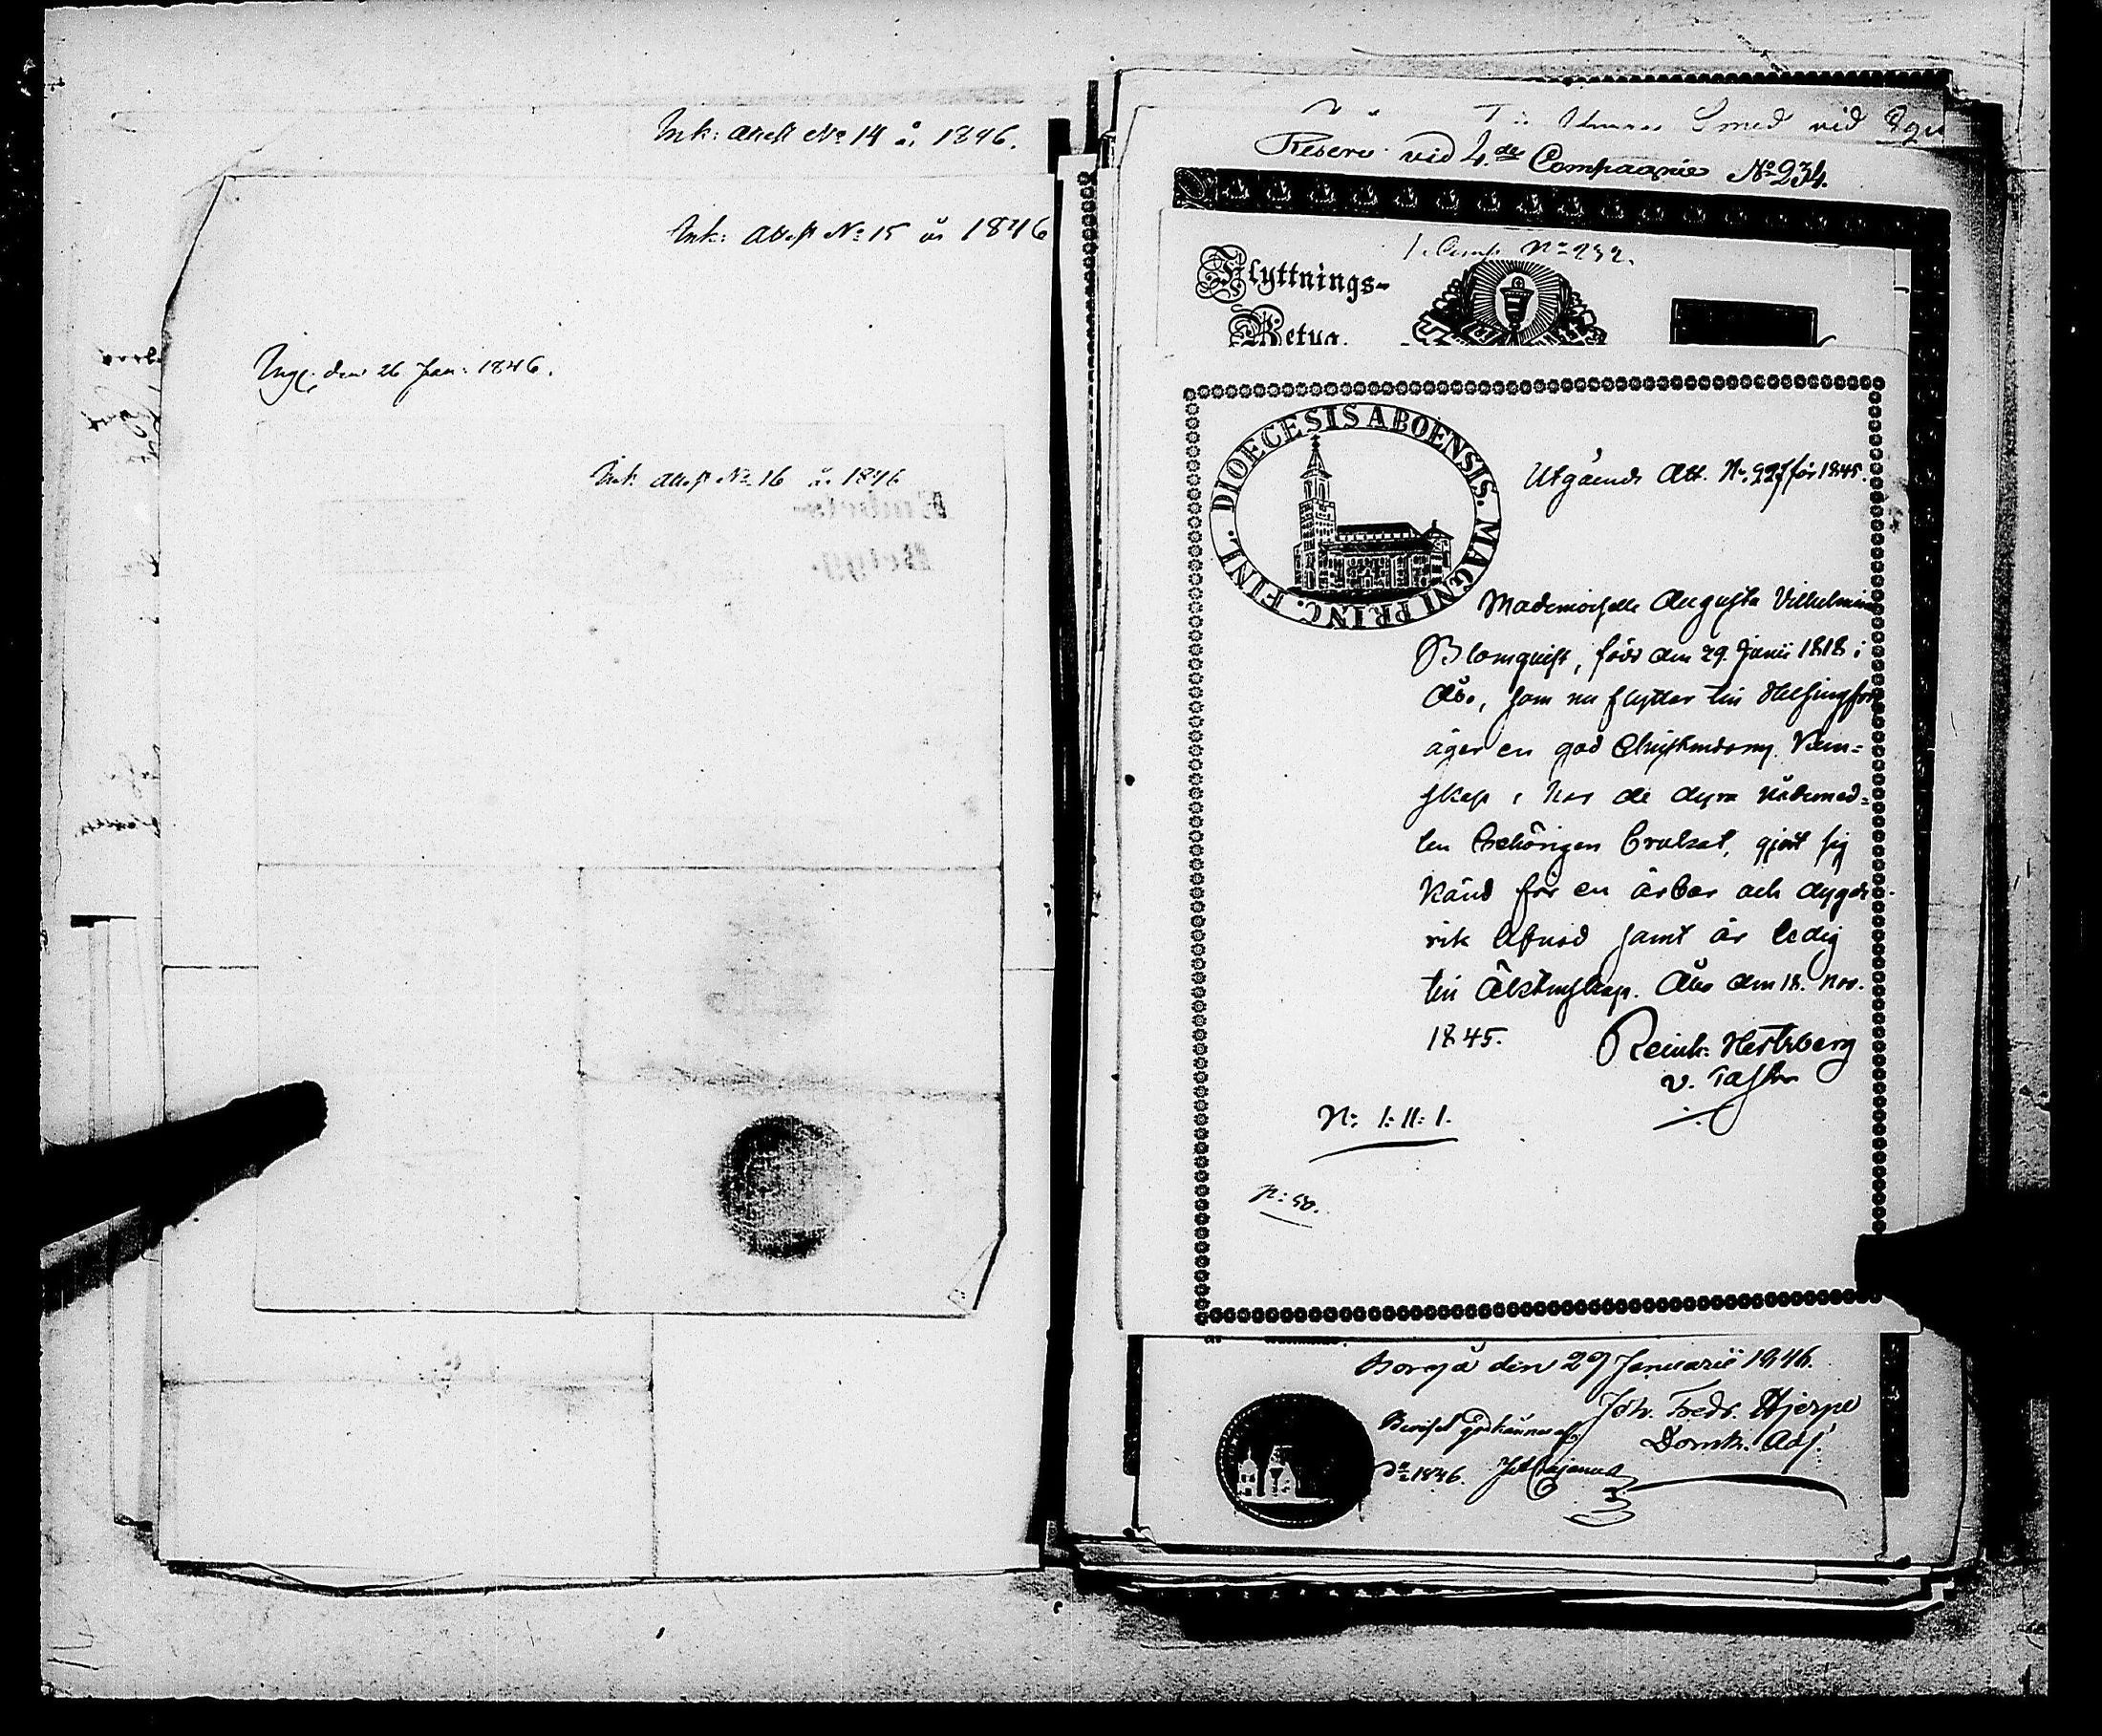 Ink: Attest No 14 år 1846.
Ink: Attest No 15 år 1846
Ing: den 26 Jan: 1846.
Ink: Attest No 16 år 1846
Smed vid
Reserv vid 4.de Compagnie No 234.
1. Comp No 232.
Flyttnings-
Betyg.
DIOECESIS ABOENSIS. MAGNI PRINC. FINL.
Utgående Att. Nr. 227 för 1845.
Mademoiselle Augusta Vilhelmina
Blomquist, född den 29. Junii 1818 i
Åbo, som nu flyttar till Helsingfors
äger en god Christendoms Kun-
skap, har de dyra nådemed-
len behörigen brukat, gjort sig
känd för en ärbar och dygd-
rik lefnad samt är ledig
till Äktenskap. Åbo den 18. Nov.
1845.
Reinh. Hertzberg
v. Pastor
N: 1:11:1.
p: 50.
Borgå den 29 Januarii 1846.
Joh. Fredr. Hjerpe
Domk. Adj.
1846.